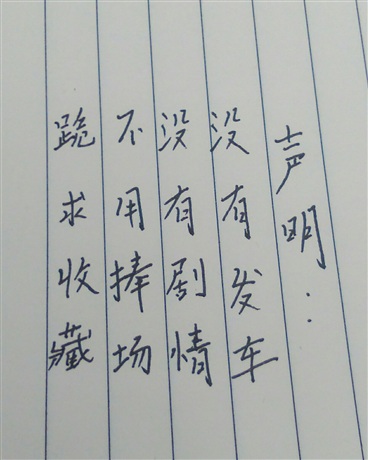 声明：
没有发车
没有剧情
不用捧场
跪求收藏